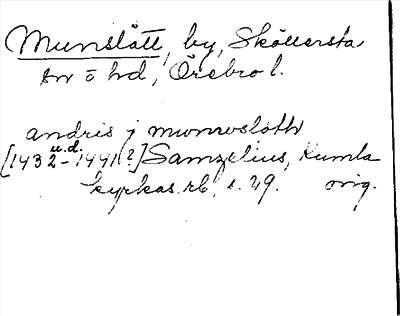 Munslätt, by, Sköllersta
sn o hd, Örebro l.
andris j munwsløth
u.d.
[1432 - 1441(?)] Samzelius, Kumla
kyrkas rb, s. 29. orig.